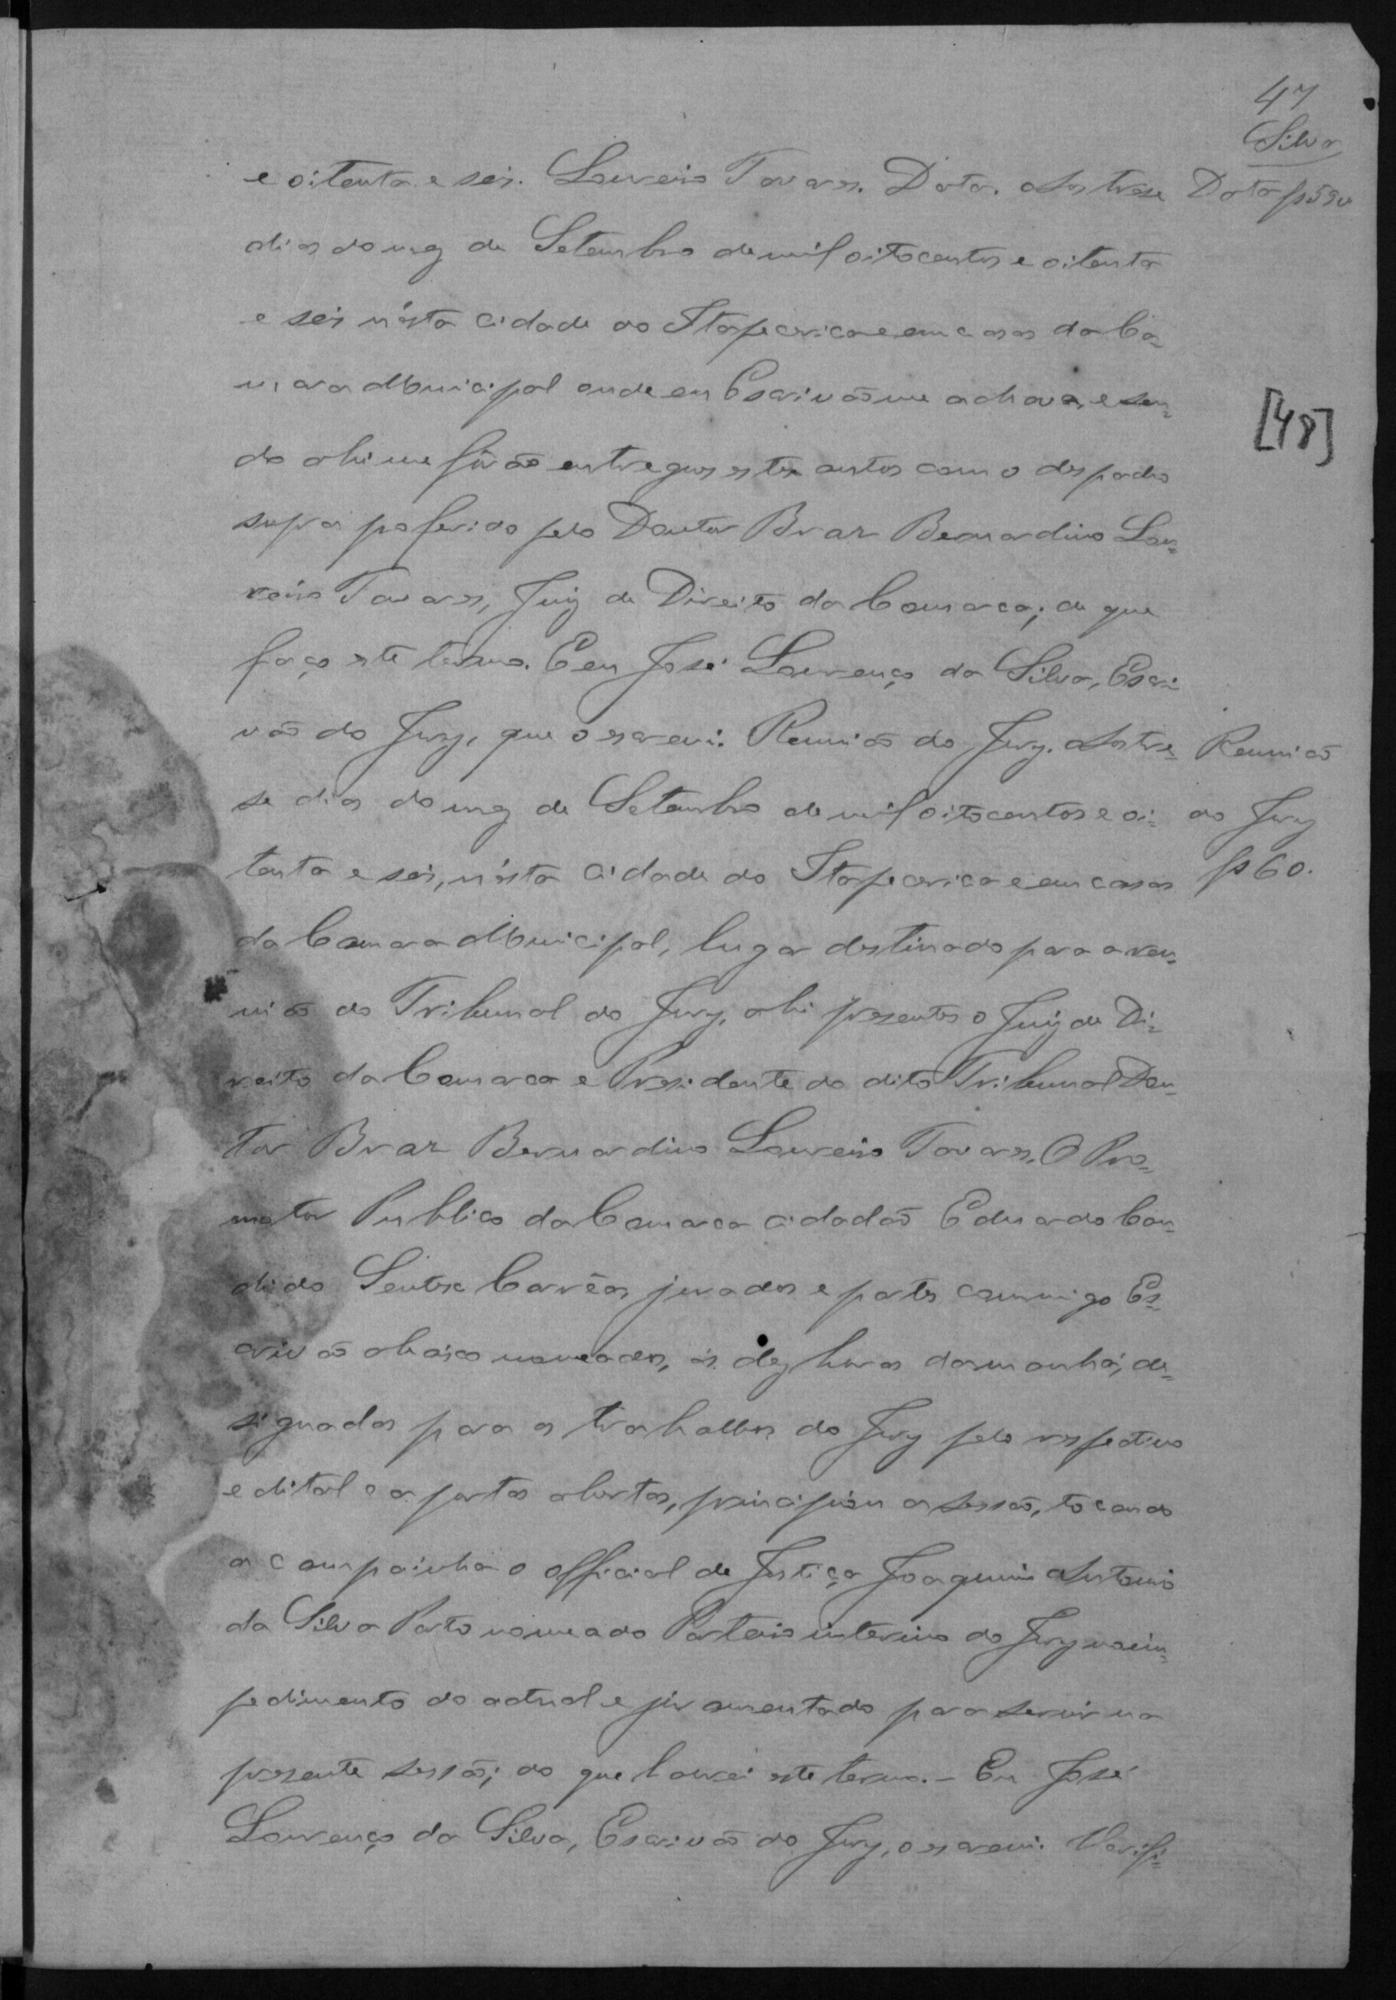 47
Silva
e oitenta e seis. Loureiro Tavares. Data. Aos treze
Data fs 59v
dias do mez de Setembro de mil oitocentos e oitenta
e seis n'esta cidade do Itapecerica e em casas da Ca-
mara Municipal onde eu Escrivão me achava, e sen-
do ahi me forão entregues estes autos com o despacho
supra proferido pelo Doutor Braz Bernardino Lou-
reiro Tavares, Juiz de Direito da Comarca; de que
faço este termo. E eu José Lourenço da Silva, Escri-
vão do Jury, que o escrevi. Reunião do Jury. Aos tre-
Reunião
se dias do mez de Setembro de mil oitocentos e oi-
do Jury
tenta e seis, n'esta cidade do Itapecerica e em casas
fs 60.
da Camara Municipal, lugar destinado para a reu-
nião do Tribunal do Jury, ahi presentes o Juiz de Di-
reito da Comarca e Presidente do dito Tribunal Dou-
tor Braz Bernardino Loureiro Tavares, O Pro-
motor Publico da Comarca cidadão Eduardo Can-
dido Corrêa, jurados e partes commigo Es-
crivão abaixo nomeados, ás dez horas da manhã, de-
signadas para os trabalhos do Jury pelo respectivo
edital e a portas abertas, principiou a sessão, tocando
a campainha o official de Justiça Joaquim Antonio
da Silva Porto nomeado Porteiro interino do Jury no im-
pedimento do actual e juramentado para servir na
presente sessão; do que lavrei este termo. - Eu José
Lourenço da Silva, Escrivão do Jury, o escrevi. Verifi-
[48]